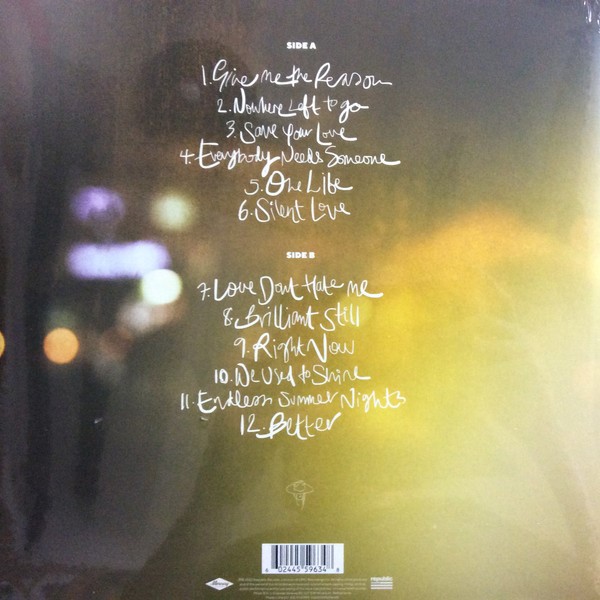 SIDE A
1. Give me the Reason
2. Nowhere Left to go
3. Save Your Love
4. Everybody Needs Someone
5. One Life
6. Silent Love
SIDE B
7. Love Dont Hate me
8. Brilliant Still
9. Right Now
10. We Used to Shine
11. Endless Summer Nights
12. Better
6 02445 59634 8
republic